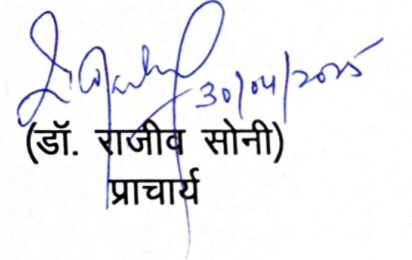 30/04/2025
(डॉ. राजीव सोनी)
प्राचार्य